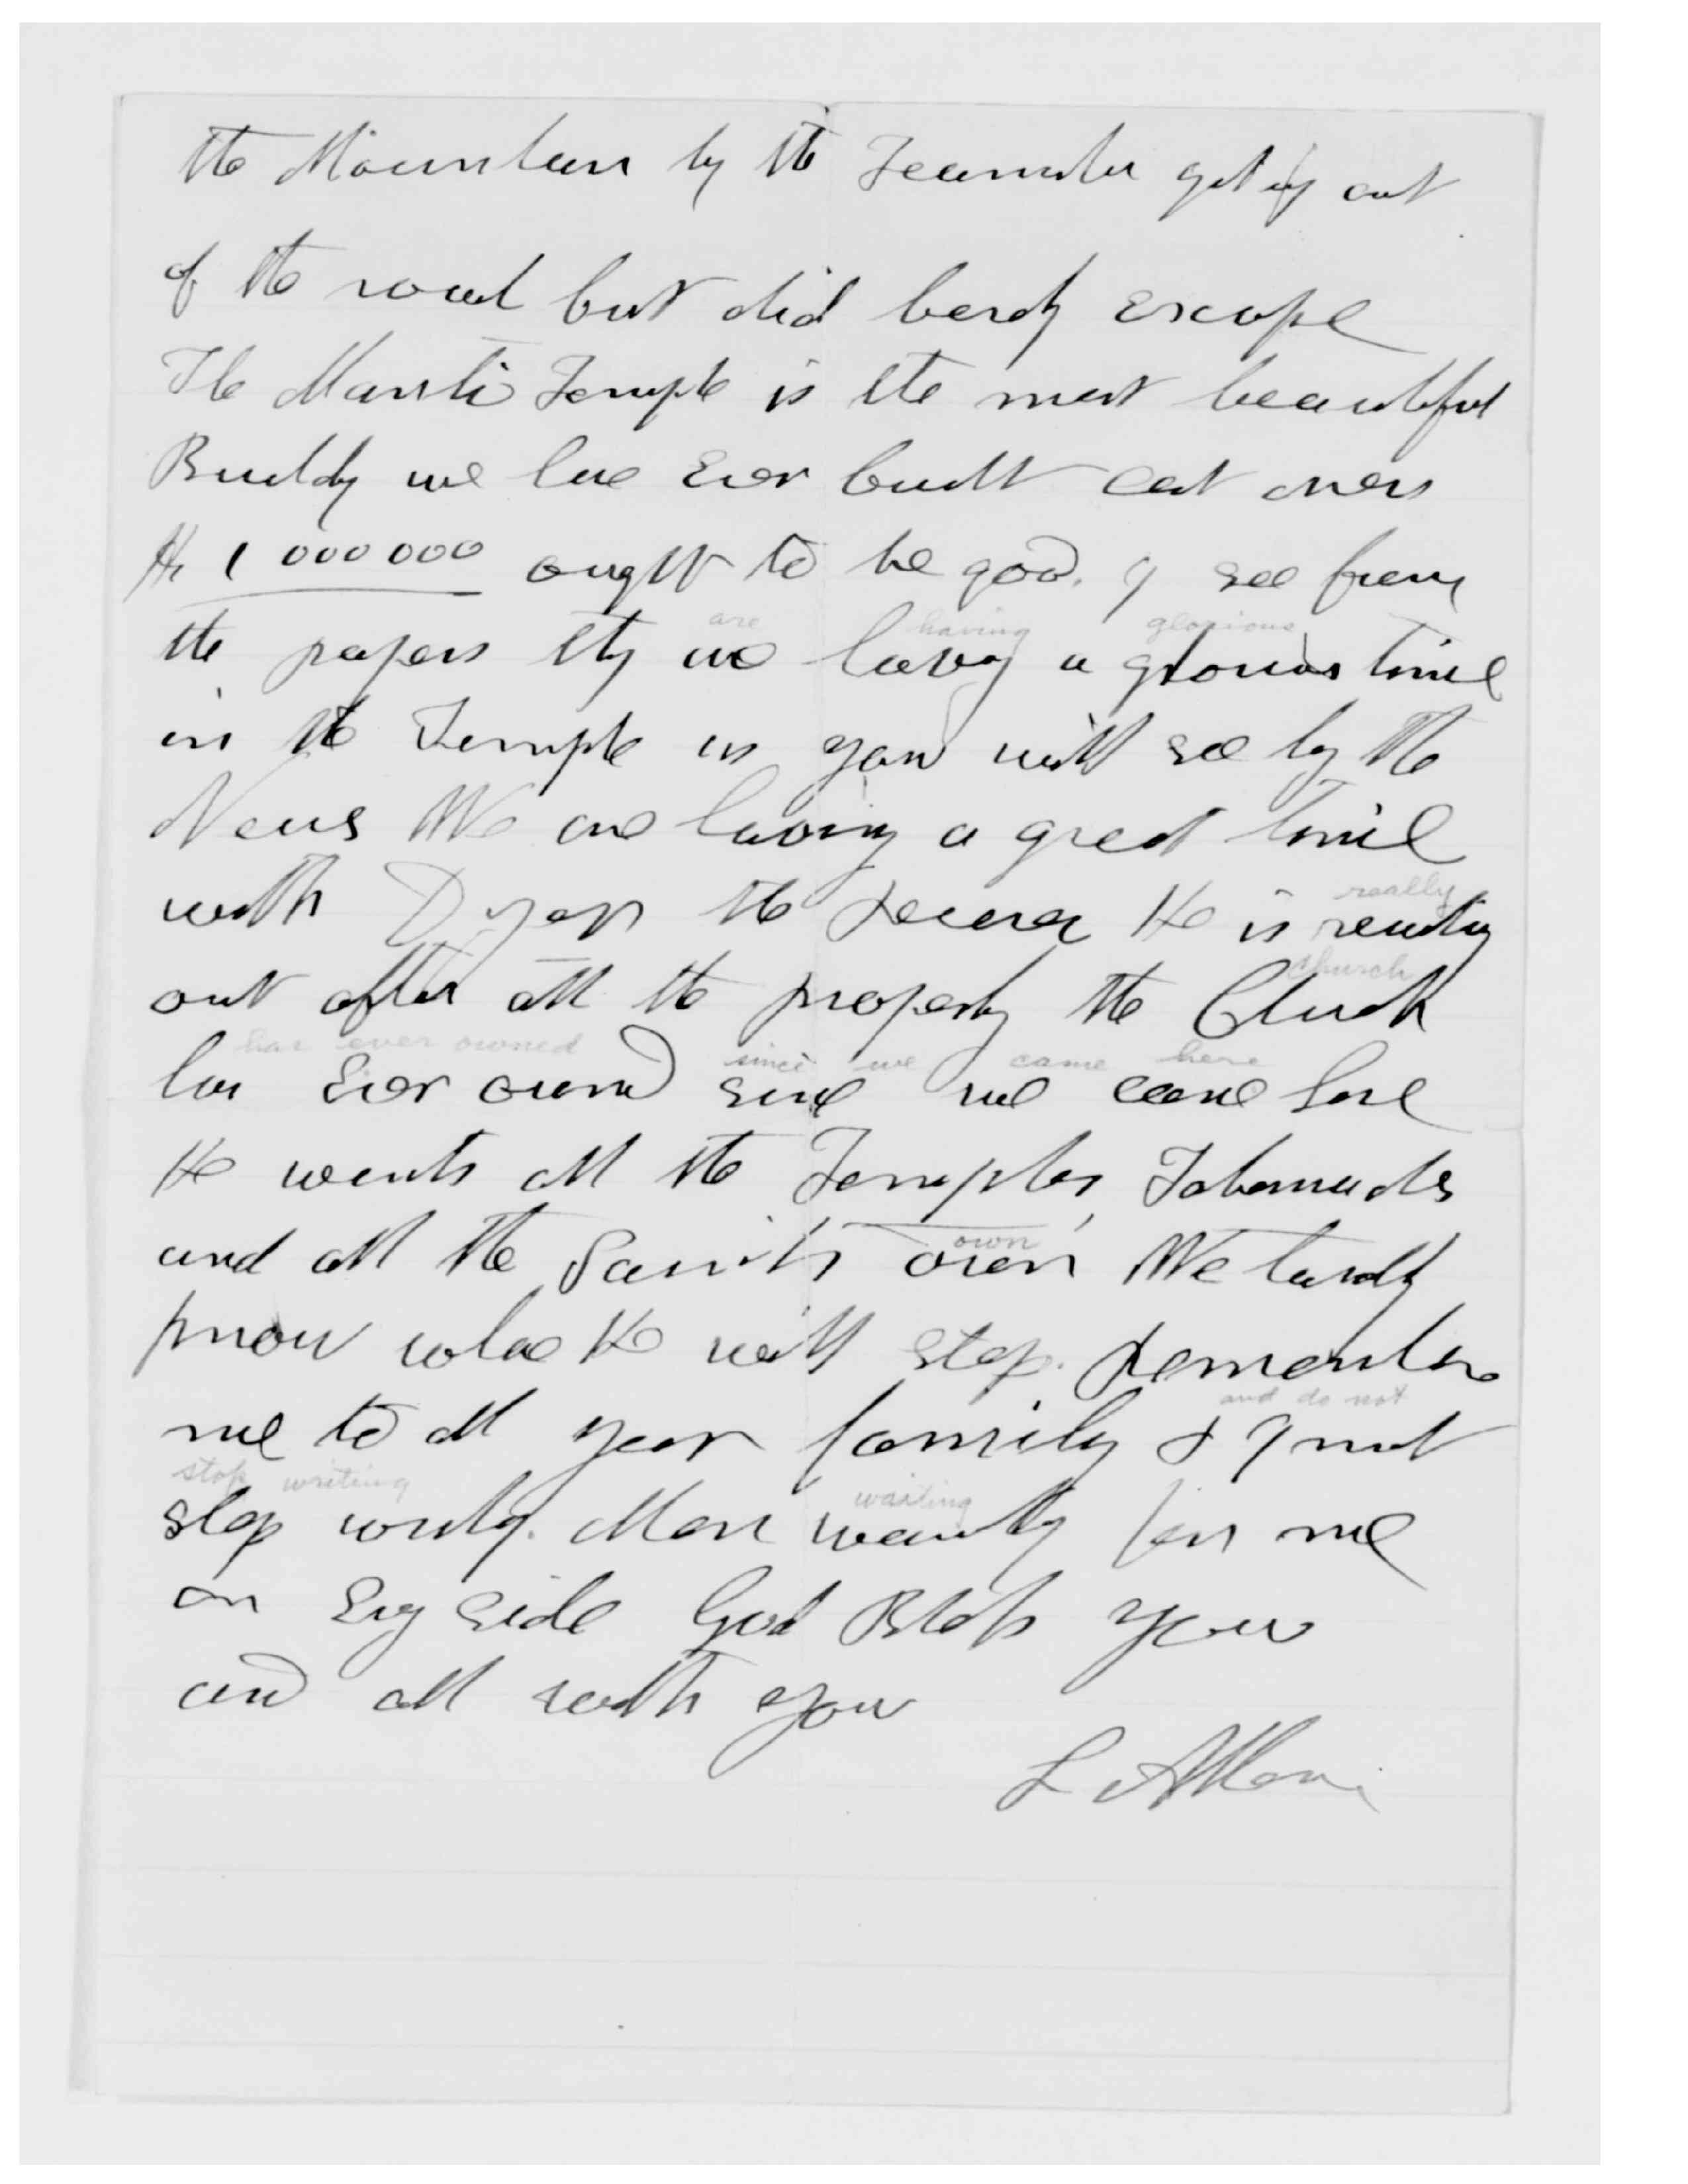 the Mountain by the Teamster getig out
of the road but did barely Escape
The Manti Temple is the most beautiful
Buildg we have Ever built cost over
1 000 000 ought to be good. I see from
are having glorious
the papers they are having a glorious time
in the Temple as you will see by the
News We are having a great time
really
with Dyer the Receiver He is
church
out after all the property the Church
has ever owned since we came here
has Ever owned since we came here
He wants all the Temples, Tabernacles
own
and all the Saints own We hardly
know where He will stop. Remember
and do not
me to all your family &
stop writing waiting
stop writg. Men waiting for me
on Evry side God Bless you
and all with you